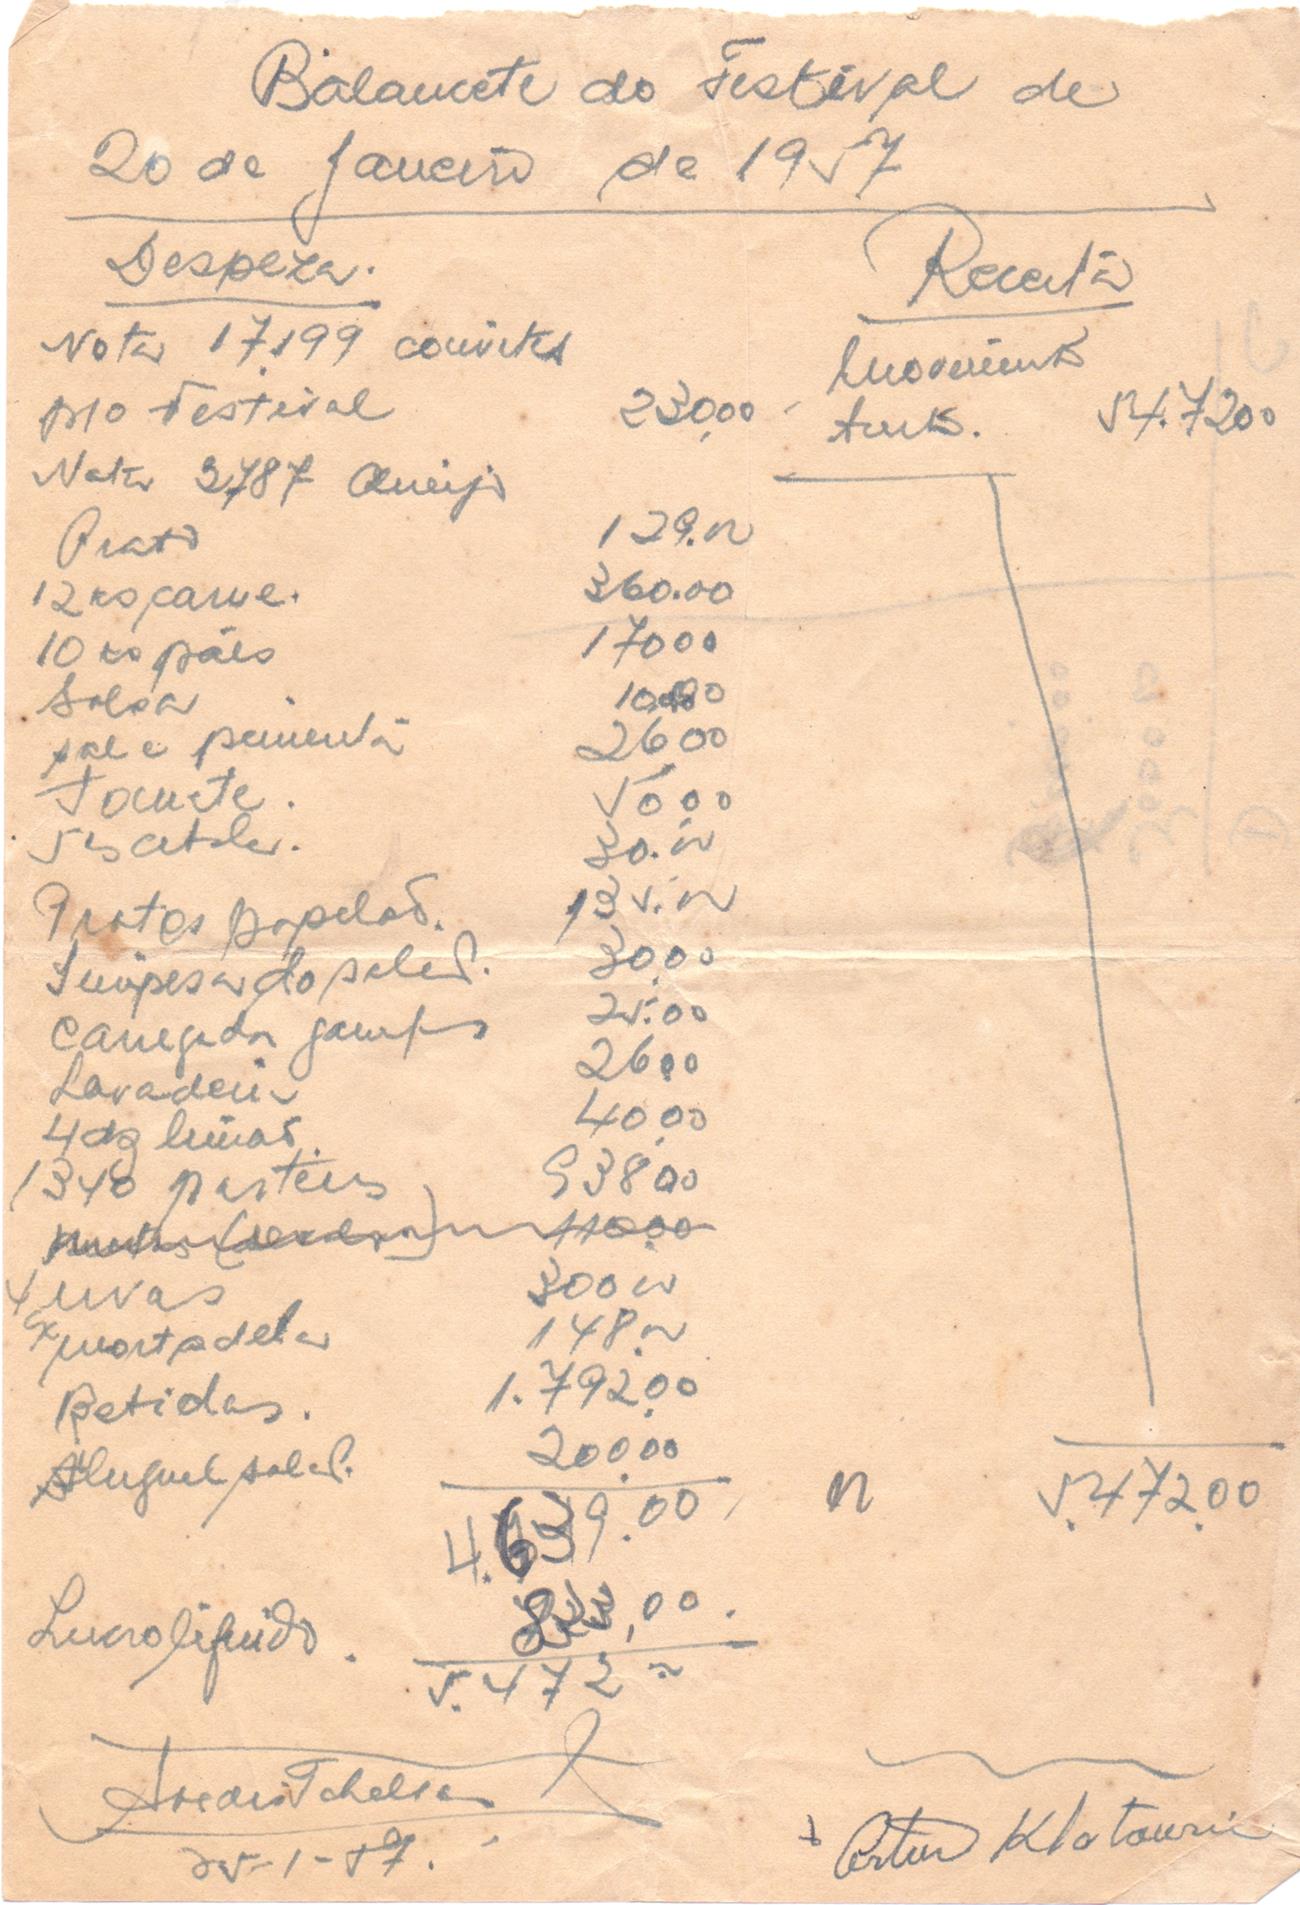 Balancete do Festival de
20 de Janeiro de 1957
Despeza. Receita
Nota 17.199 convites Movimento
p/o Festival 230,00 5.472,00
Nota 3,787 Queijo
Prato 129.00
12 ks carne. 360.00
10 ks pães 170 00
Salsa 10,00
sal e pimenta 26,00
Tomate. 50,00
5 ks cebola. 30.00
Pratos papelão. 135.00
Limpesa do salão. 30,00
Carregador garrafas 25.00
Lavadeira 26,00
4 dz limão. 40,00
1340 pasteis 938,00
110,00
4 cx uvas 300 00
mortadela 148.00
Bebidas. 1.792,00
Aluguel salão. 200,00
4.639.00 5.472.00
Lucro liquido. 833,00.
5.472 00
25-1-57.
Artur